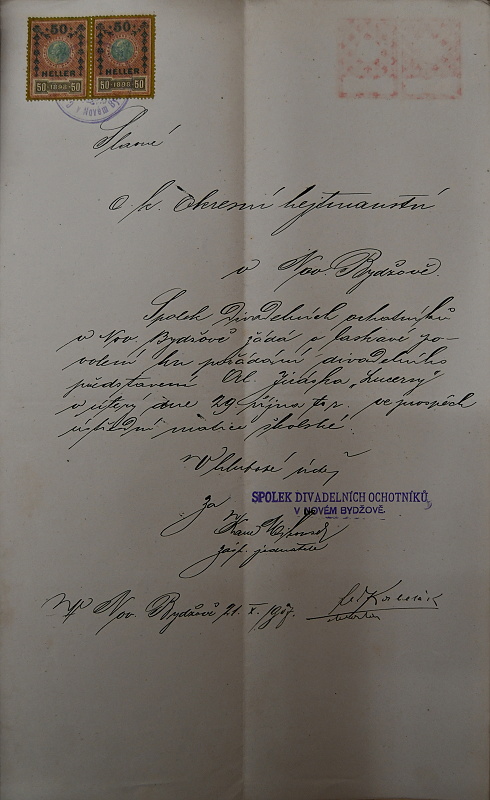 50 50
HELLER HELLER
50 1898 50 50 1898 50
Slavné
c. k. okresní hejtmanství
v Nov. Bydžově.
Spolek divadelních ochotníků
v Nov. Bydžově žádá o laskavé po-
volení ku pořádání divadelního
představení Al. Jiráska „Lucerny“
v úterý dne 29. října t. r. ve prospěch
ústřední matice školské.
V hluboké úctě
za SPOLEK DIVADELNÍCH OCHOTNÍKŮ
V NOVÉM BYDŽOVĚ.
Karel
zást. jednatele
Nov. Bydžově 21. X. 1907.